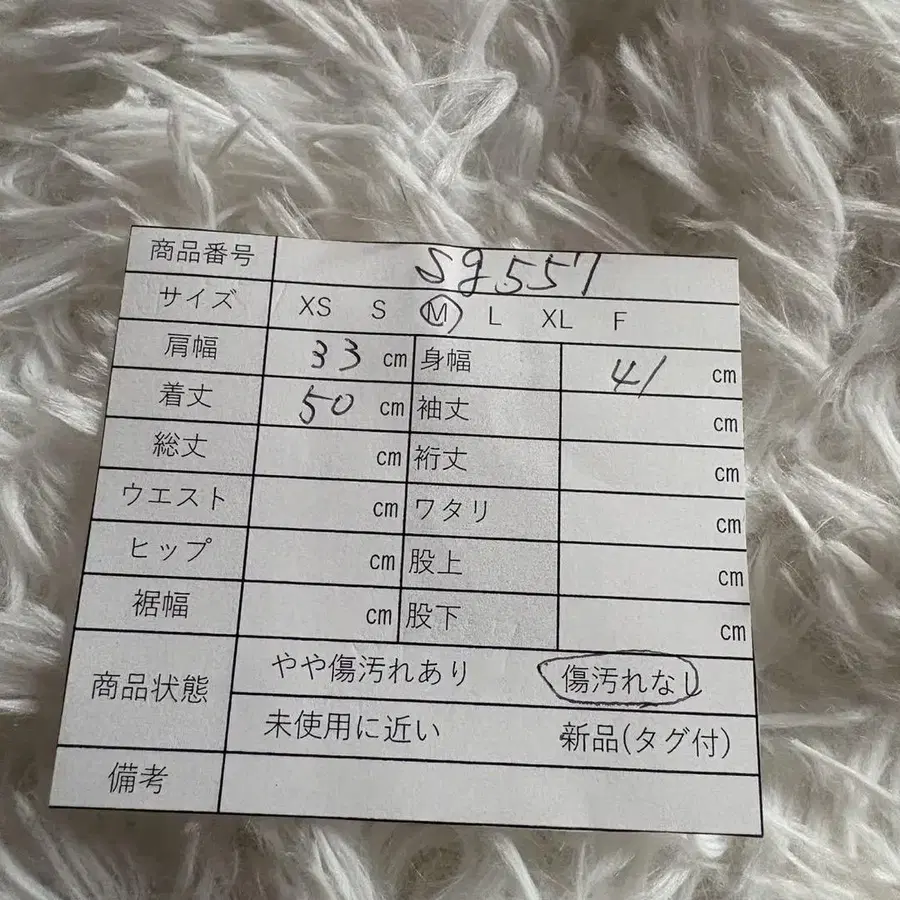 商品番号 sg557
サイズ XS S M L XL F
肩幅 33 cm 身幅 41 cm
着丈 50 cm 袖丈 cm
総丈 cm 裄丈 cm
ウエスト cm ワタリ cm
ヒップ cm 股上 cm
裾幅 cm 股下 cm
商品状態 やや傷汚れあり 傷汚れなし
未使用に近い 新品(タグ付)
備考